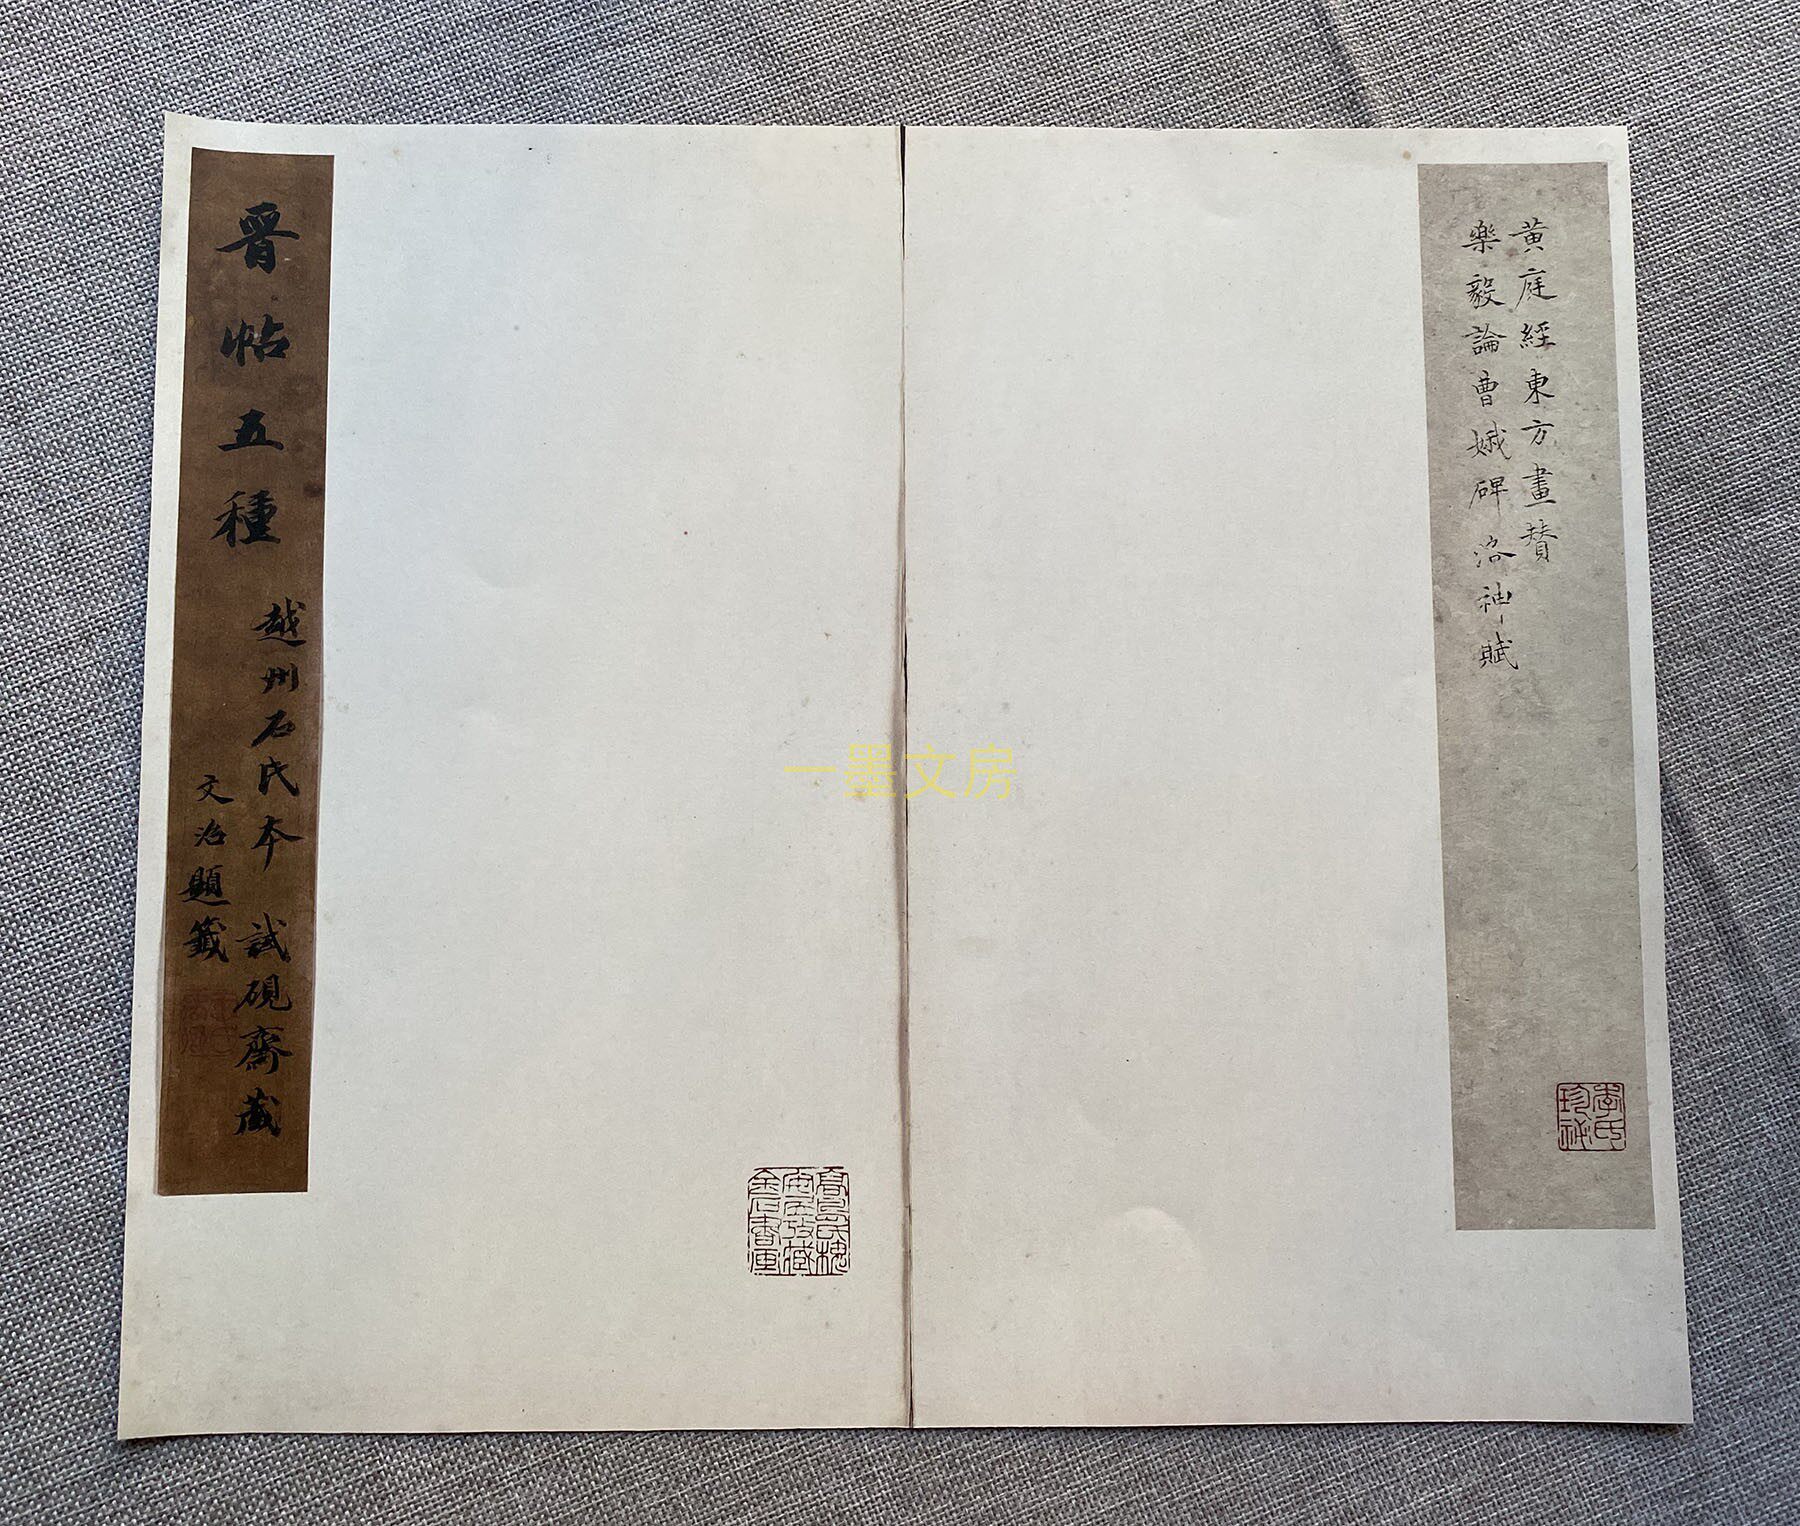 黄庭經東方畫贊
樂毅論曹娥碑洛神賦
李氏珍祕
晋帖五種
越州石氏本 試硯齋藏
文治題籤
一墨文房